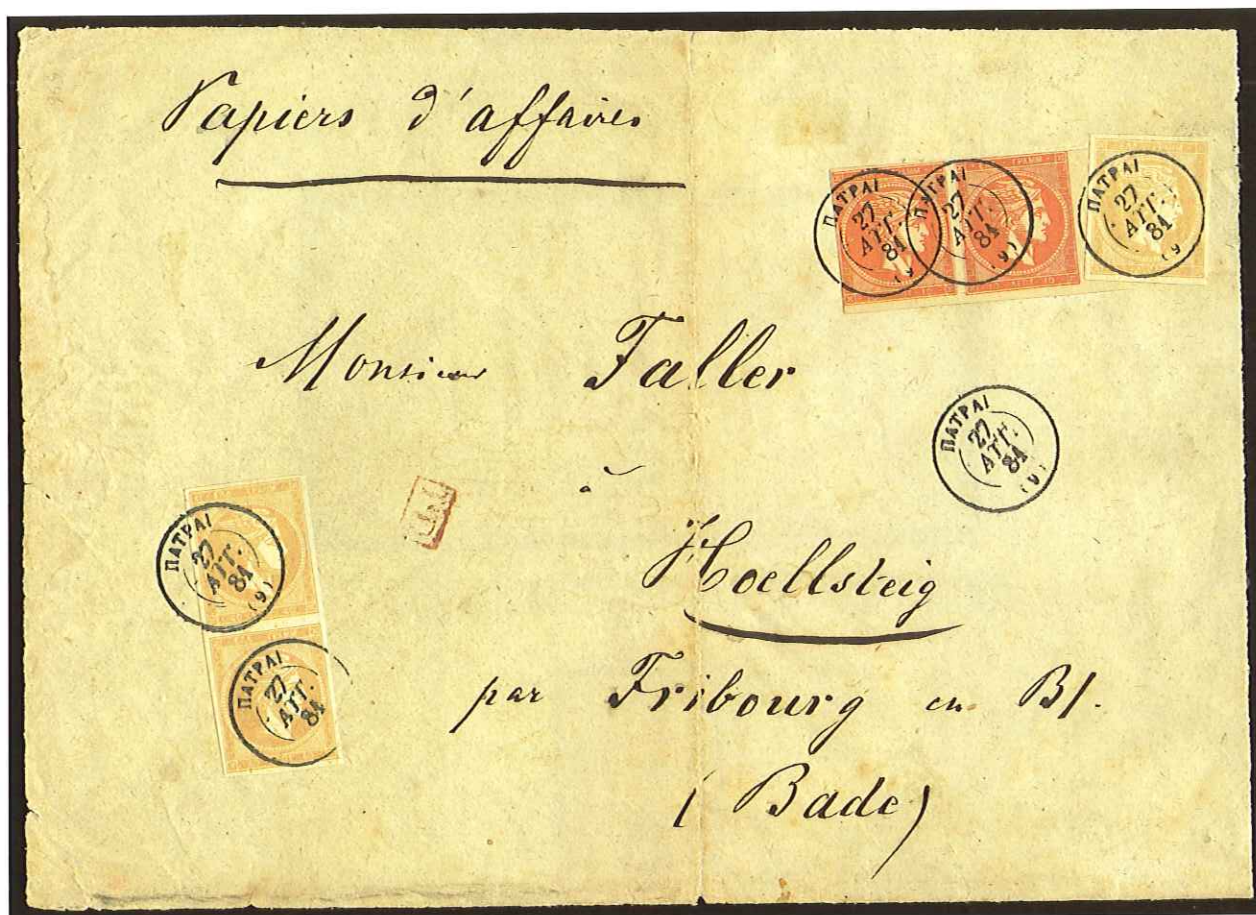 Papiers d'affaires
ΠΑΤΡΑΙ
27
ΑΥΓ.
81
(9
ΠΑΤΡΑΙ
27
ΑΥΓ.
81
(9)
ΠΑΤΡΑΙ
27
ΑΥΓ.
81
(9
Monsieur Faller
ΠΑΤΡΑΙ
27
ΑΥΓ.
81
(9)
à
ΠΑΤΡΑΙ
27
ΑΥΓ.
81
(9)
Hoellsteig
ΠΑΤΡΑΙ
27
ΑΥΓ.
81
par Fribourg en Br.
(Bade)